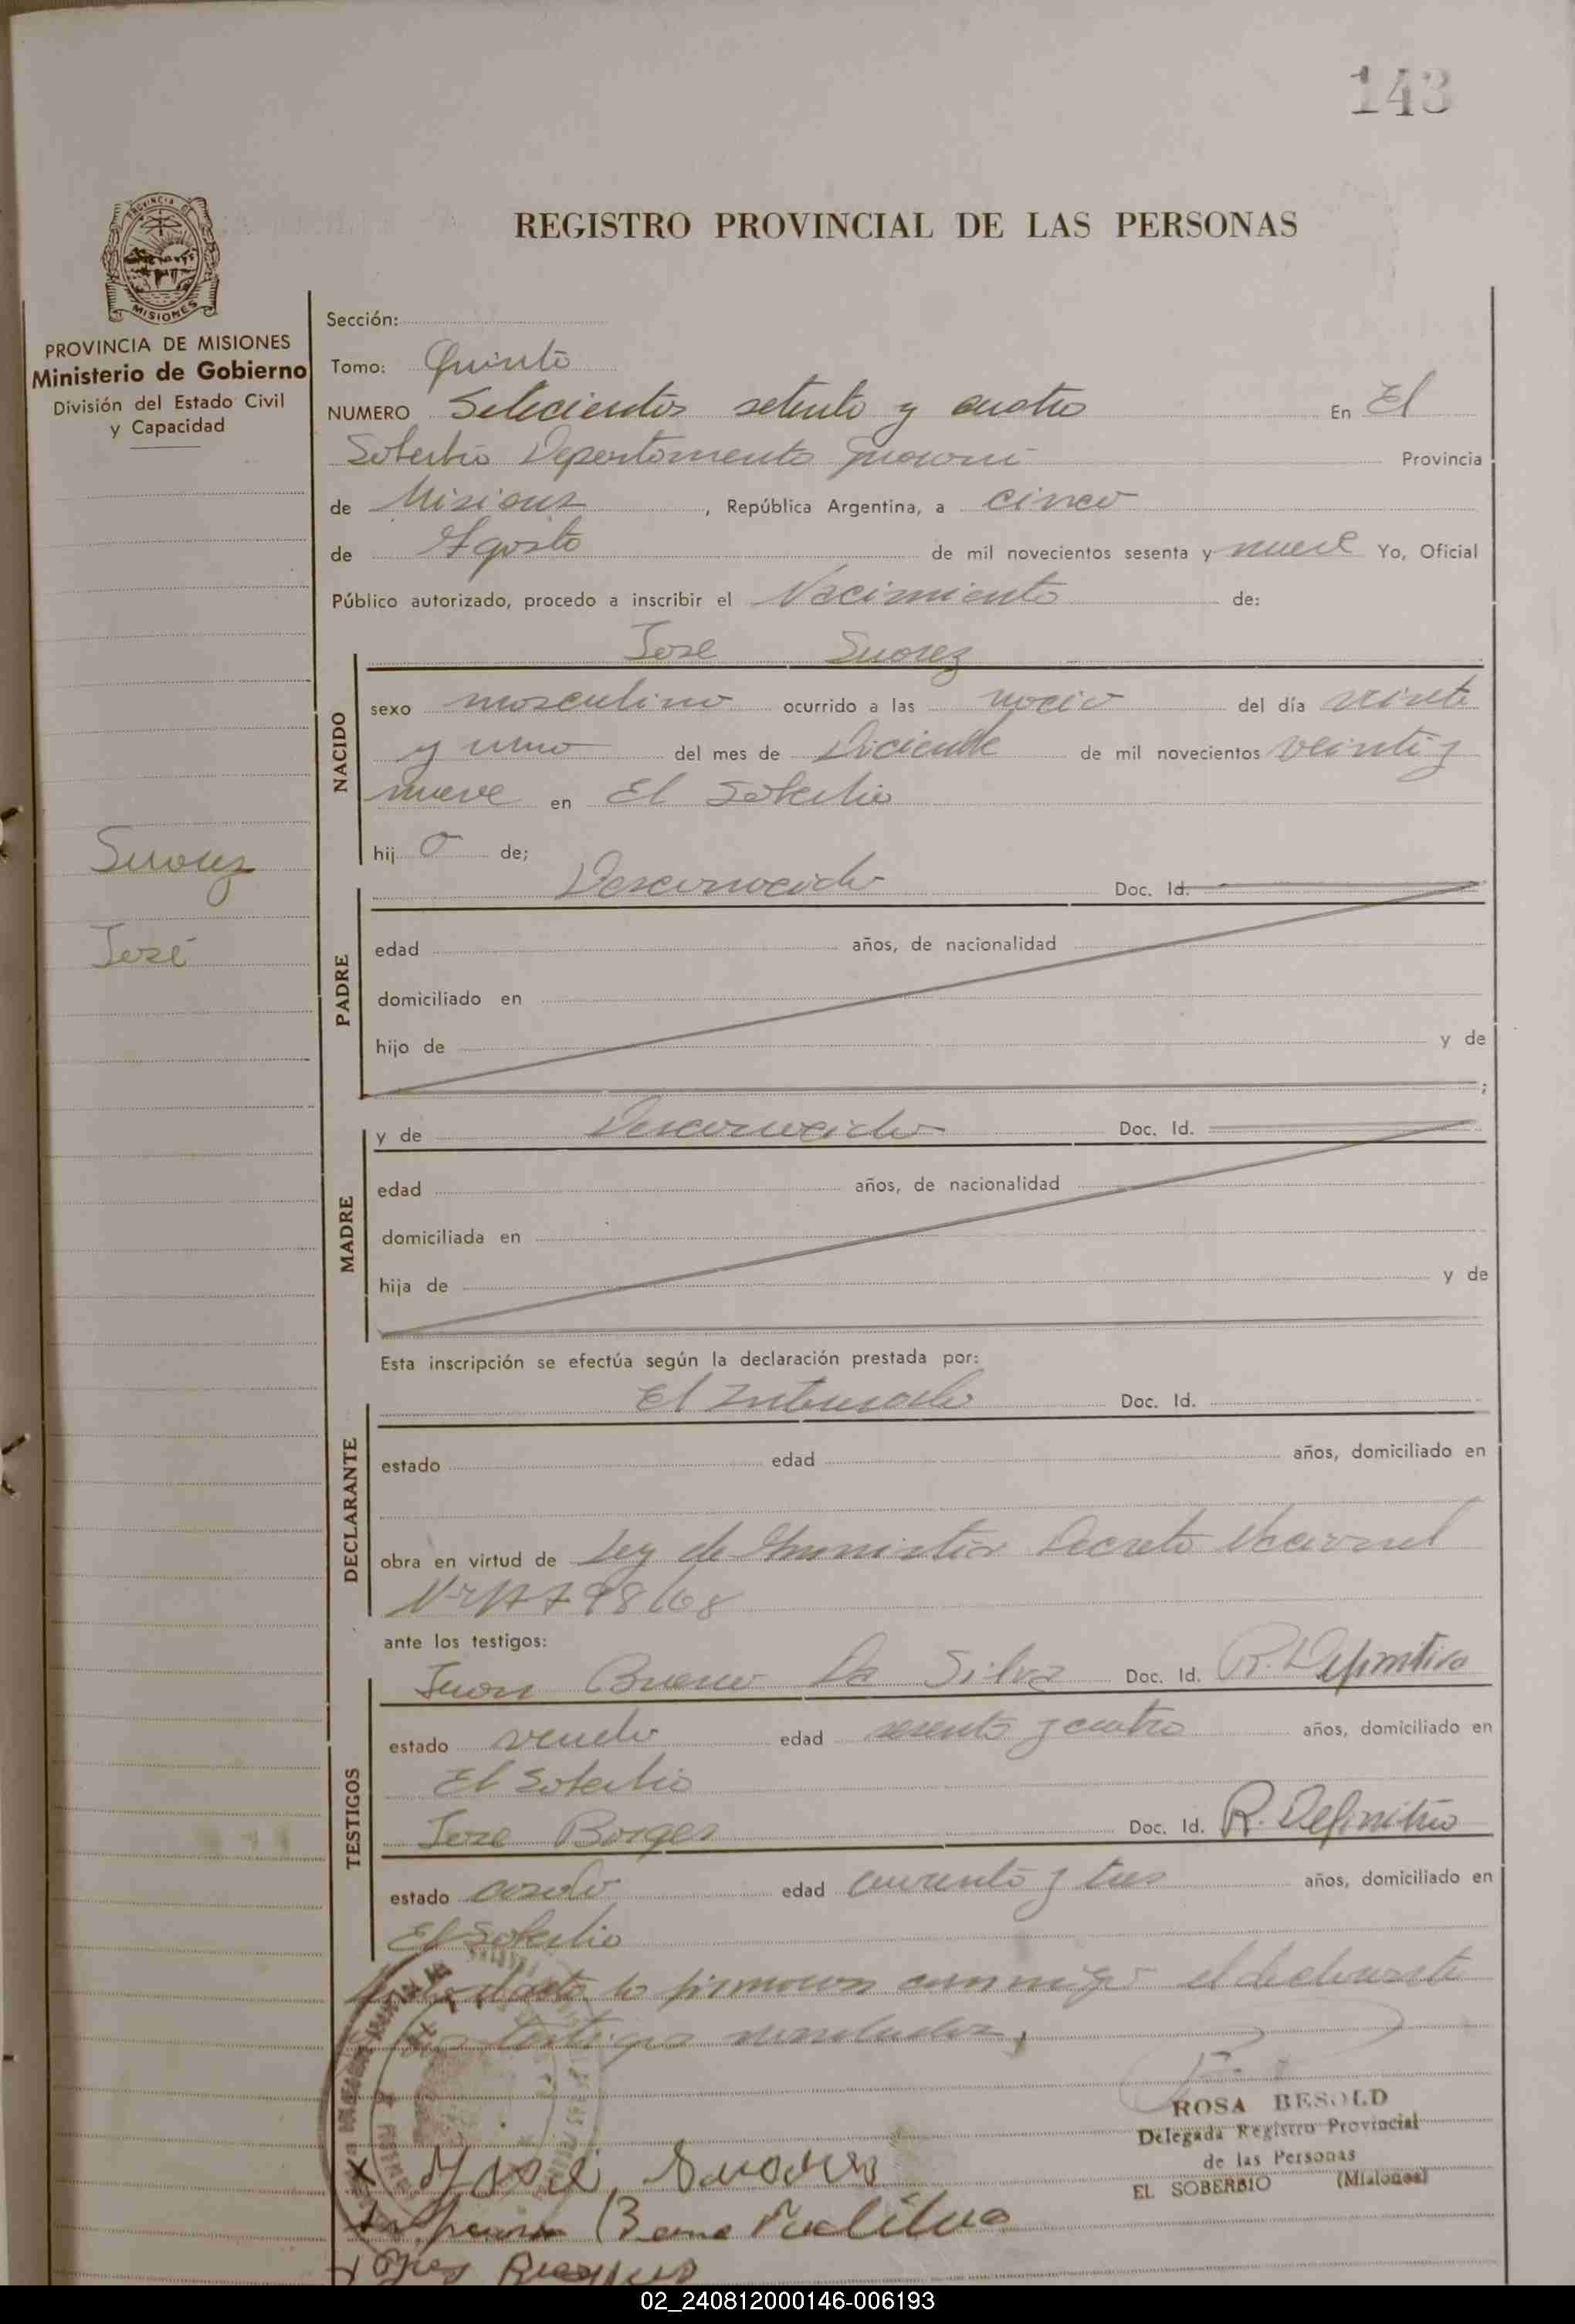 143
REGISTRO PROVINCIAL DE LAS PERSONAS
MISIONES
PROVINCIA DE MISIONES
Ministerio de Gobierno
División del Estado Civil
y Capacidad
Sección:
Tomo: Quinto
NUMERO Setecientos setenta y cuatro En El
Soberbio Departamento Guarani Provincia
de Misiones, República Argentina, a cinco
de Agosto de mil novecientos sesenta y nueve Yo, Oficial
Público autorizado, procedo a inscribir el Nacimiento de:
Jose Suarez
NACIDO
sexo masculino ocurrido a las del día veinte
y uno del mes de Diciembre de mil novecientos veinti y
nueve en El Soberbio
hij o de;
Suarez
José
PADRE
Desconocido Doc. Id.
edad años, de nacionalidad
domiciliado en
hijo de y de
;
MADRE
y de Desconocido Doc. Id.
edad años, de nacionalidad
domiciliada en
hija de y de
Esta inscripción se efectúa según la declaración prestada por:
DECLARANTE
El Interesado Doc. Id.
estado edad años, domiciliado en
obra en virtud de Ley de Amnistia Decreto Nacional
98/68
ante los testigos:
TESTIGOS
Juan Bueno Da Silva Doc. Id. R. Definitiva
estado viudo edad sesenta y cuatro años, domiciliado en
El Soberbio
Jose Borges Doc. Id. R. Definitivo
estado casado edad cuarenta y tres años, domiciliado en
El Soberbio
acta la firmaron conmigo el declarante
testigos
ROSA BESOLD
Delegada Registro Provincial
de las Personas
EL SOBERBIO (Misiones)
José Suares
02_240812000146-006193